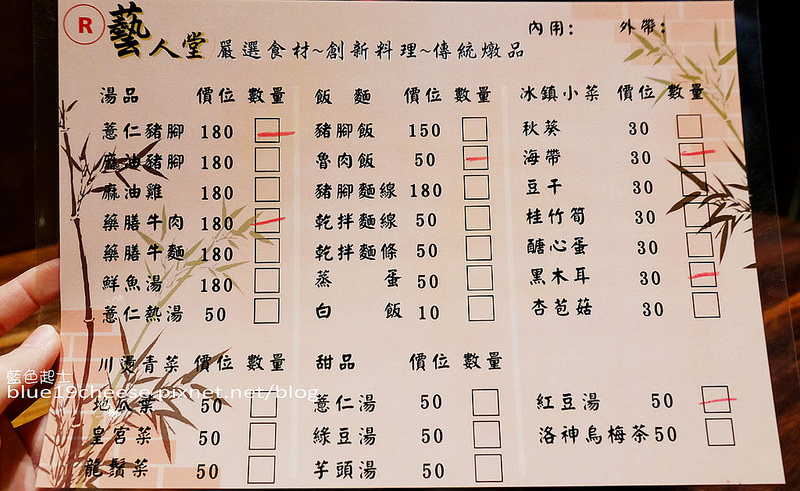 R 藝人堂 嚴選食材~創新料理~傳統燉品 內用: 外帶:
湯品 價位 數量
薏仁豬腳 180
麻油豬腳 180
麻油雞 180
藥膳牛肉 180
藥膳牛麵 180
鮮魚湯 180
薏仁熱湯 50
飯 麵 價位 數量
豬腳飯 150
魯肉飯 50
豬腳麵線 180
乾拌麵線 50
乾拌麵條 50
蒸 蛋 50
白 飯 10
冰鎮小菜 價位 數量
秋葵 30
海帶 30
豆干 30
桂竹筍 30
醣心蛋 30
黑木耳 30
杏苞菇 30
川燙青菜 價位 數量
地瓜葉 50
皇宮菜 50
龍鬚菜 50
甜品 價位 數量
薏仁湯 50
綠豆湯 50
芋頭湯 50
紅豆湯 50
洛神烏梅茶 50
藍色起士
blue19cheese.pixnet.net/blog